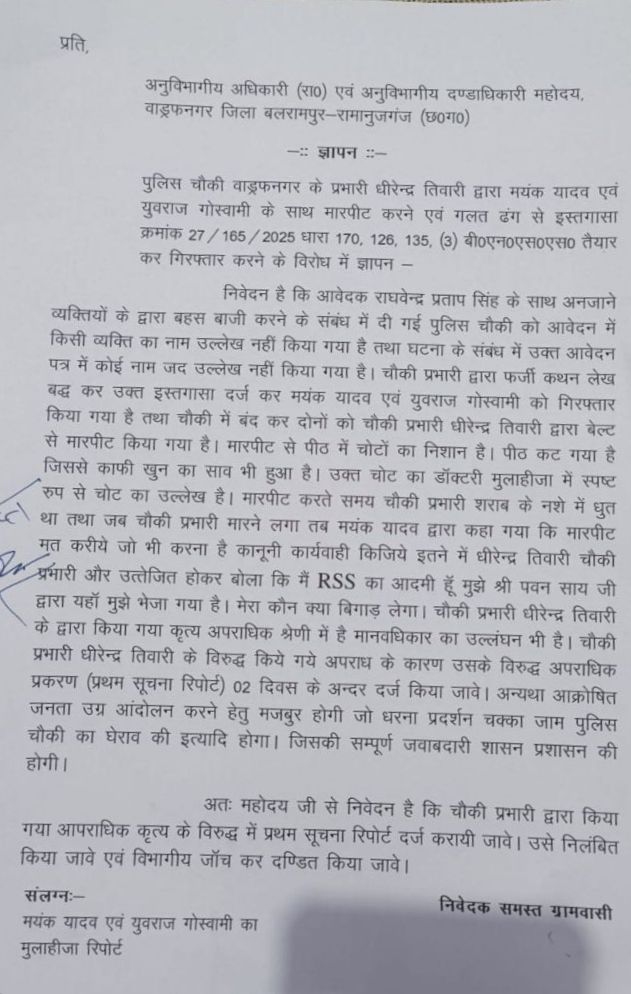 प्रति,
अनुविभागीय अधिकारी (रा0) एवं अनुविभागीय दण्डाधिकारी महोदय,
वाड्रफनगर जिला बलरामपुर–रामानुजगंज (छ0ग0)
–:: ज्ञापन ::–
पुलिस चौकी वाड्रफनगर के प्रभारी धीरेन्द्र तिवारी द्वारा मयंक यादव एवं
युवराज गोस्वामी के साथ मारपीट करने एवं गलत ढंग से इस्तगासा
क्रमांक 27/165/2025 धारा 170, 126, 135, (3) बी0एन0एस0एस0 तैयार
कर गिरफ्तार करने के विरोध में ज्ञापन –
निवेदन है कि आवेदक राघवेन्द्र प्रताप सिंह के साथ अनजाने
व्यक्तियों के द्वारा बहस बाजी करने के संबंध में दी गई पुलिस चौकी को आवेदन में
किसी व्यक्ति का नाम उल्लेख नहीं किया गया है तथा घटना के संबंध में उक्त आवेदन
पत्र में कोई नाम जद उल्लेख नहीं किया गया है। चौकी प्रभारी द्वारा फर्जी कथन लेख
बद्ध कर उक्त इस्तगासा दर्ज कर मयंक यादव एवं युवराज गोस्वामी को गिरफ्तार
किया गया है तथा चौकी में बंद कर दोनों को चौकी प्रभारी धीरेन्द्र तिवारी द्वारा बेल्ट
से मारपीट किया गया है। मारपीट से पीठ में चोटों का निशान है। पीठ कट गया है
जिससे काफी खुन का साव भी हुआ है। उक्त चोट का डॉक्टरी मुलाहीजा में स्पष्ट
रुप से चोट का उल्लेख है। मारपीट करते समय चौकी प्रभारी शराब के नशे में धुत
था तथा जब चौकी प्रभारी मारने लगा तब मयंक यादव द्वारा कहा गया कि मारपीट
मत करीये जो भी करना है कानूनी कार्यवाही किजिये इतने में धीरेन्द्र तिवारी चौकी
प्रभारी और उत्तेजित होकर बोला कि मैं RSS का आदमी हूँ मुझे श्री पवन साय जी
द्वारा यहॉ मुझे भेजा गया है। मेरा कौन क्या बिगाड़ लेगा। चौकी प्रभारी धीरेन्द्र तिवारी
के द्वारा किया गया कृत्य अपराधिक श्रेणी में है मानवधिकार का उल्लंघन भी है। चौकी
प्रभारी धीरेन्द्र तिवारी के विरुद्ध किये गये अपराध के कारण उसके विरुद्ध अपराधिक
प्रकरण (प्रथम सूचना रिपोर्ट) 02 दिवस के अन्दर दर्ज किया जावे। अन्यथा आक्रोषित
जनता उग्र आंदोलन करने हेतु मजबुर होगी जो धरना प्रदर्शन चक्का जाम पुलिस
चौकी का घेराव की इत्यादि होगा। जिसकी सम्पूर्ण जवाबदारी शासन प्रशासन की
होगी।
अतः महोदय जी से निवेदन है कि चौकी प्रभारी द्वारा किया
गया आपराधिक कृत्य के विरुद्ध में प्रथम सूचना रिपोर्ट दर्ज करायी जावे। उसे निलंबित
किया जावे एवं विभागीय जॉच कर दण्डित किया जावे।
संलग्नः–
मयंक यादव एवं युवराज गोस्वामी का
मुलाहीजा रिपोर्ट
निवेदक समस्त ग्रामवासी